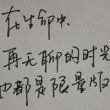 在生命中.
再无聊的时光
也都是限量版